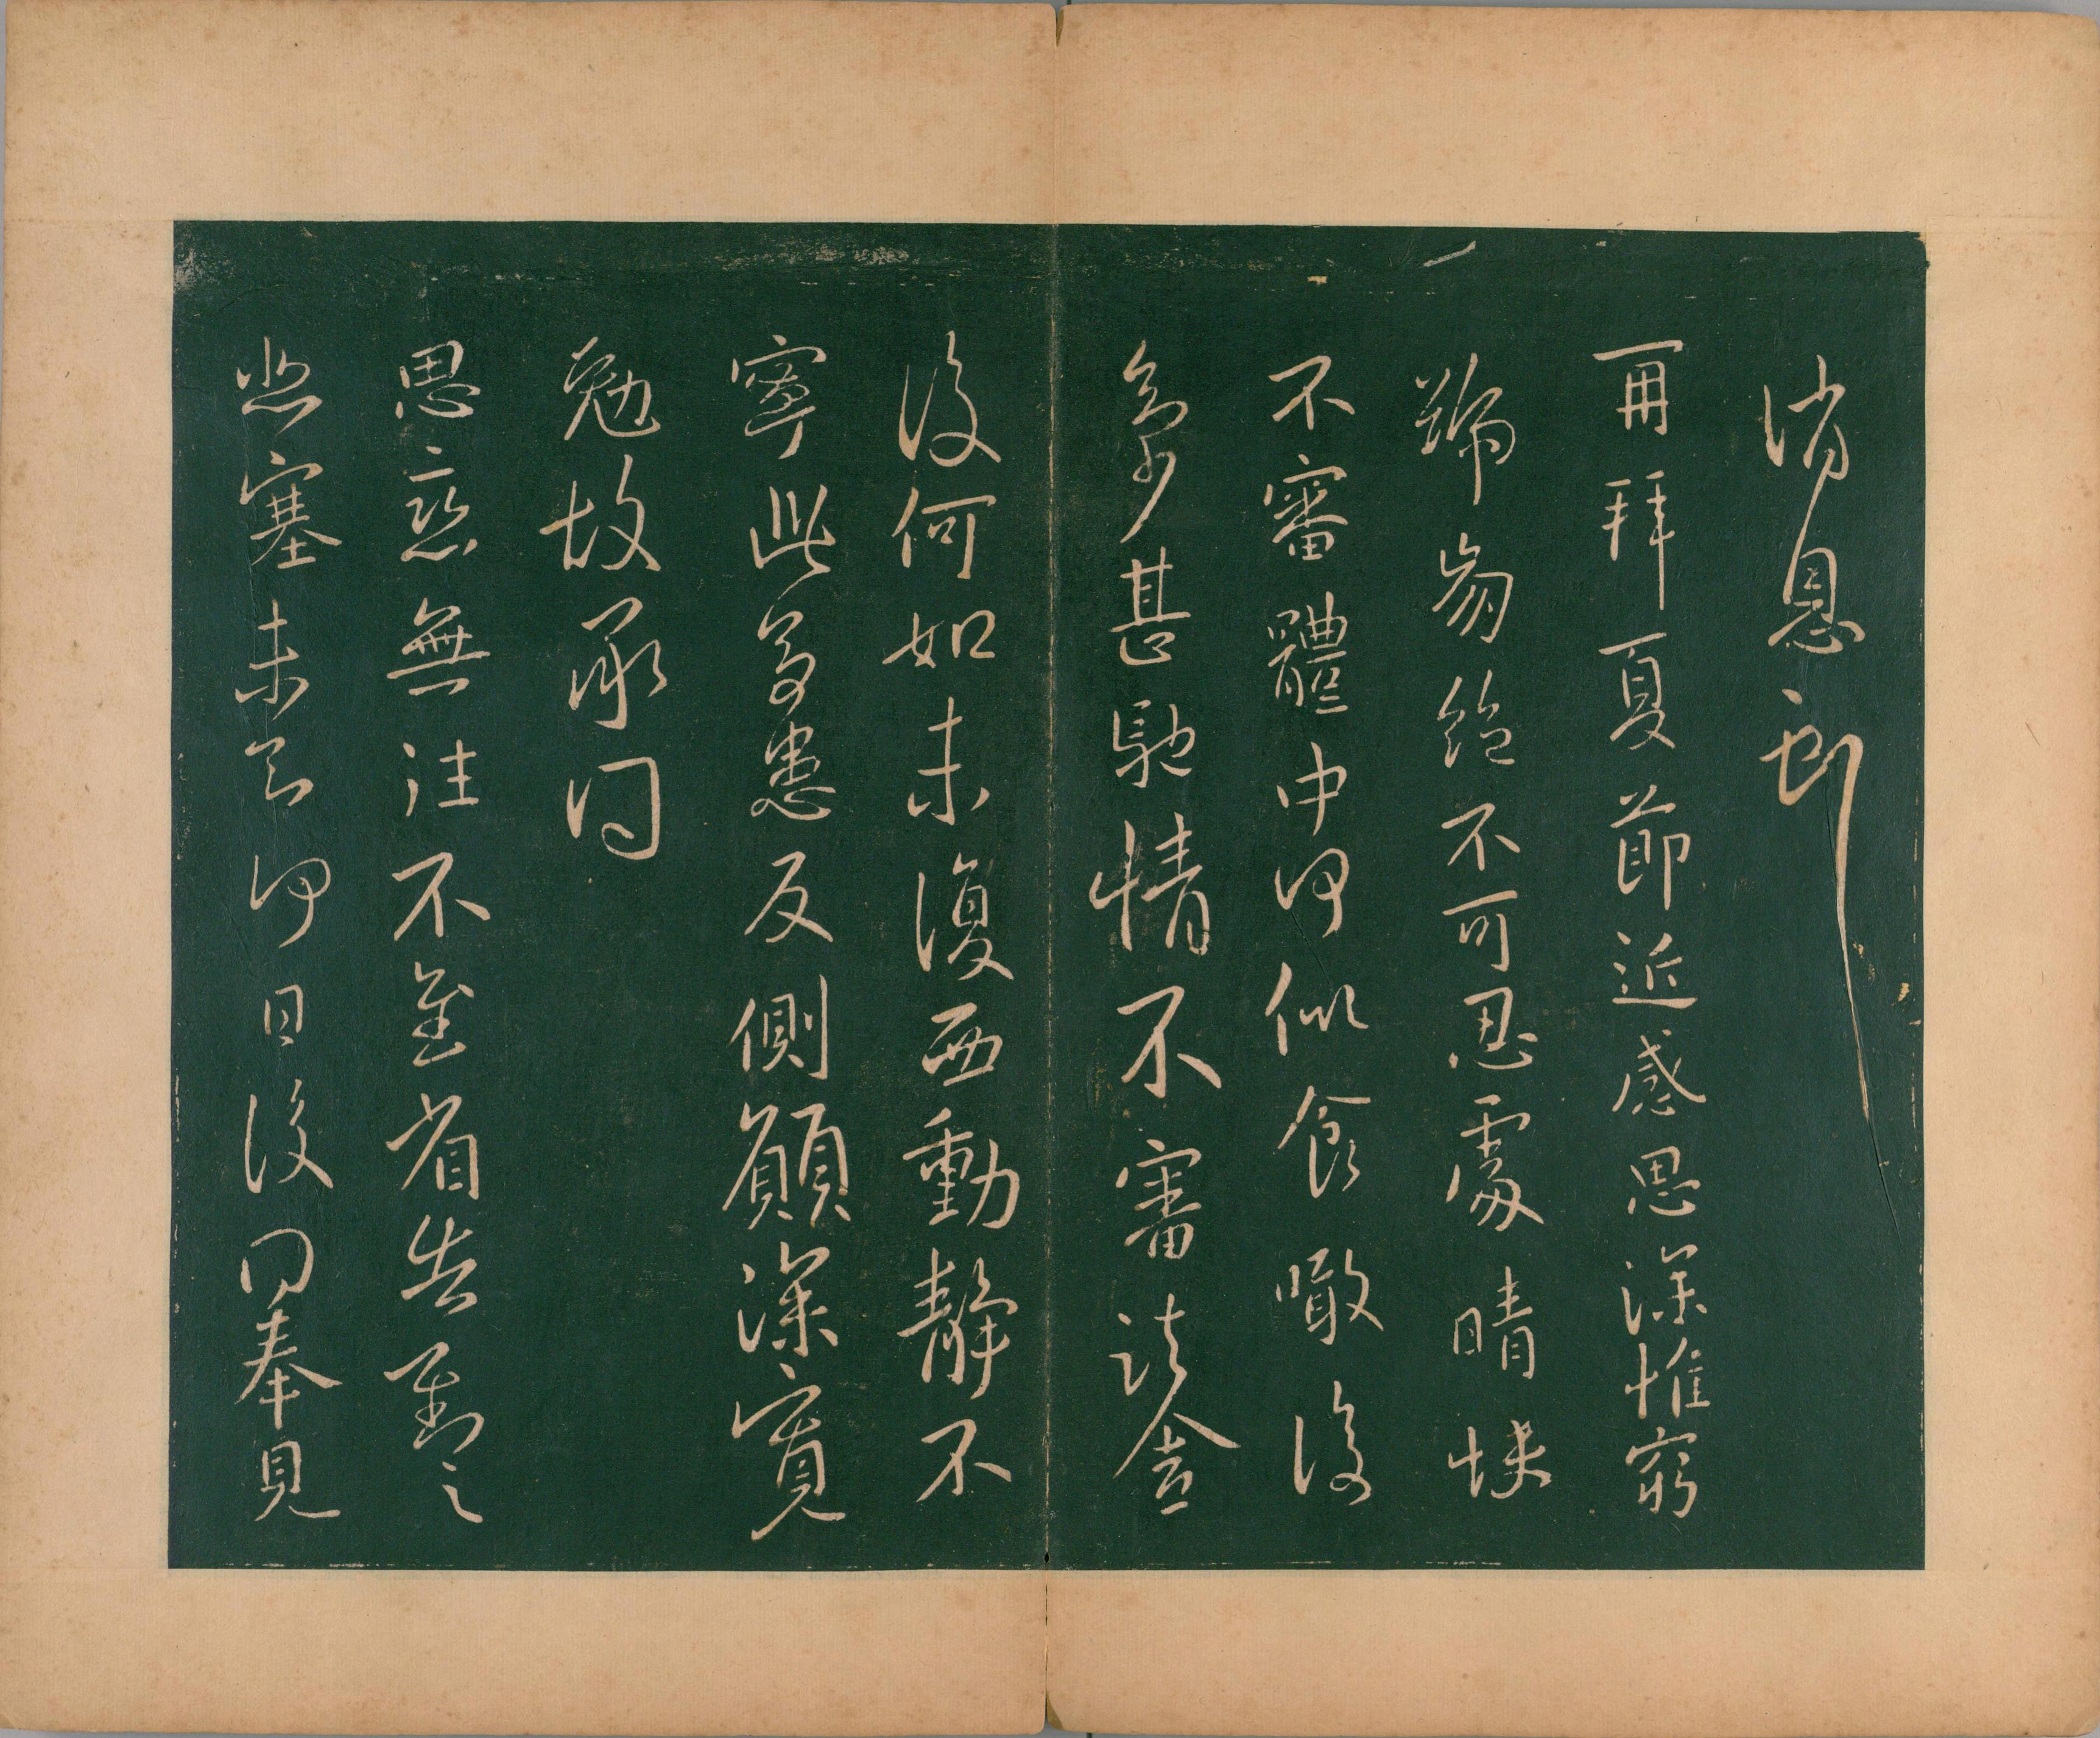 消息
再拜夏節近感思深惟窮
號崩絕不可忍處晴快
不審體中何似食噉復
多少甚馳情不審諸舍
復何如未復西動靜不
寧此為患反側願深寬
勉故承問
思戀無往不至省告對之
悲塞未知何日復得奉見